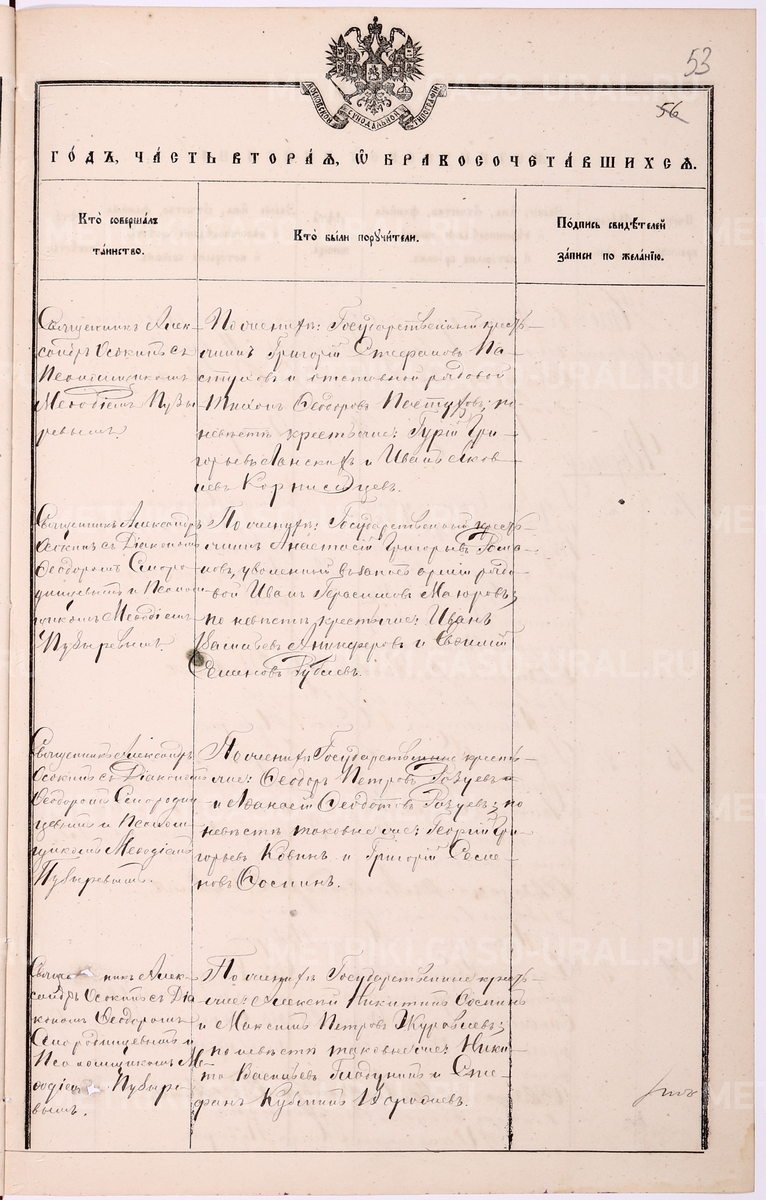 53
56
МОСКОВСКОЙ СѴНОДАЛЬНОЙ ТИПОГРАФІИ
ГО́ДЪ, ЧА́СТЬ ВТОРА́Я, Ѿ БРАКОСОЧЕТА́ВШИХСЯ.
Кто̀ соверша́лъ
та́инство.
Кто̀ бы́ли поручи́тели.
По́дпись свидѣ́телей
за́писи по жела́нію.
Священникъ Алек-
сандръ Осокинъ съ
Псаломщикомъ
Меѳодіемъ Пузы-
ревымъ.
По женихѣ: Государственный кресть-
янинъ Григорій Стефановъ Па-
стуховъ и отставной рядовой
Ѳеодоровъ Пастуховъ; по
невѣстѣ крестьяне: Гурій Гри-
горьевъ и Иванъ Яков-
левъ
Священникъ Александръ
Осокинъ съ Діакономъ
Ѳеодоромъ Сморо-
динцевымъ и Псалом-
щикомъ Меѳодіемъ
Пузыревымъ.
По женихѣ: Государственный кресть-
янинъ Анастасій Григорьевъ Рома-
новъ, уволенный въ запасъ арміи рядо-
вой Иванъ Герасимовъ Мазуровъ;
по невѣстѣ крестьяне: Иванъ
Васильевъ Анциферовъ и Евѳимій
Семеновъ
Священникъ Александръ
Осокинъ съ Діакономъ
Ѳеодоромъ Смородин-
цевымъ и Псалом-
щикомъ Меѳодіемъ
Пузыревымъ.
По женихѣ Государственные кресть-
яне: Ѳеодоръ Петровъ и
и Аѳанасій Ѳеодотовъ по
невѣстѣ таковые же: Георгій Гри-
горьевъ Ковинъ и Григорій Семе-
новъ Сосминъ.
Священникъ Алек-
сандръ Осокинъ съ Діа-
кономъ Ѳеодоромъ
Смородинцевымъ и
Псаломщикомъ Ме-
ѳодіемъ Пузыре-
вымъ.
По женихѣ Государственные кресть-
яне: Алексѣй Никитинъ Сосминъ
и Максимъ Петровъ Журавлевъ;
по невѣстѣ таковые же: Ники-
та Васильевъ и Сте-
фанъ Кузьминъ
METRIKI.GASO-URAL.RU